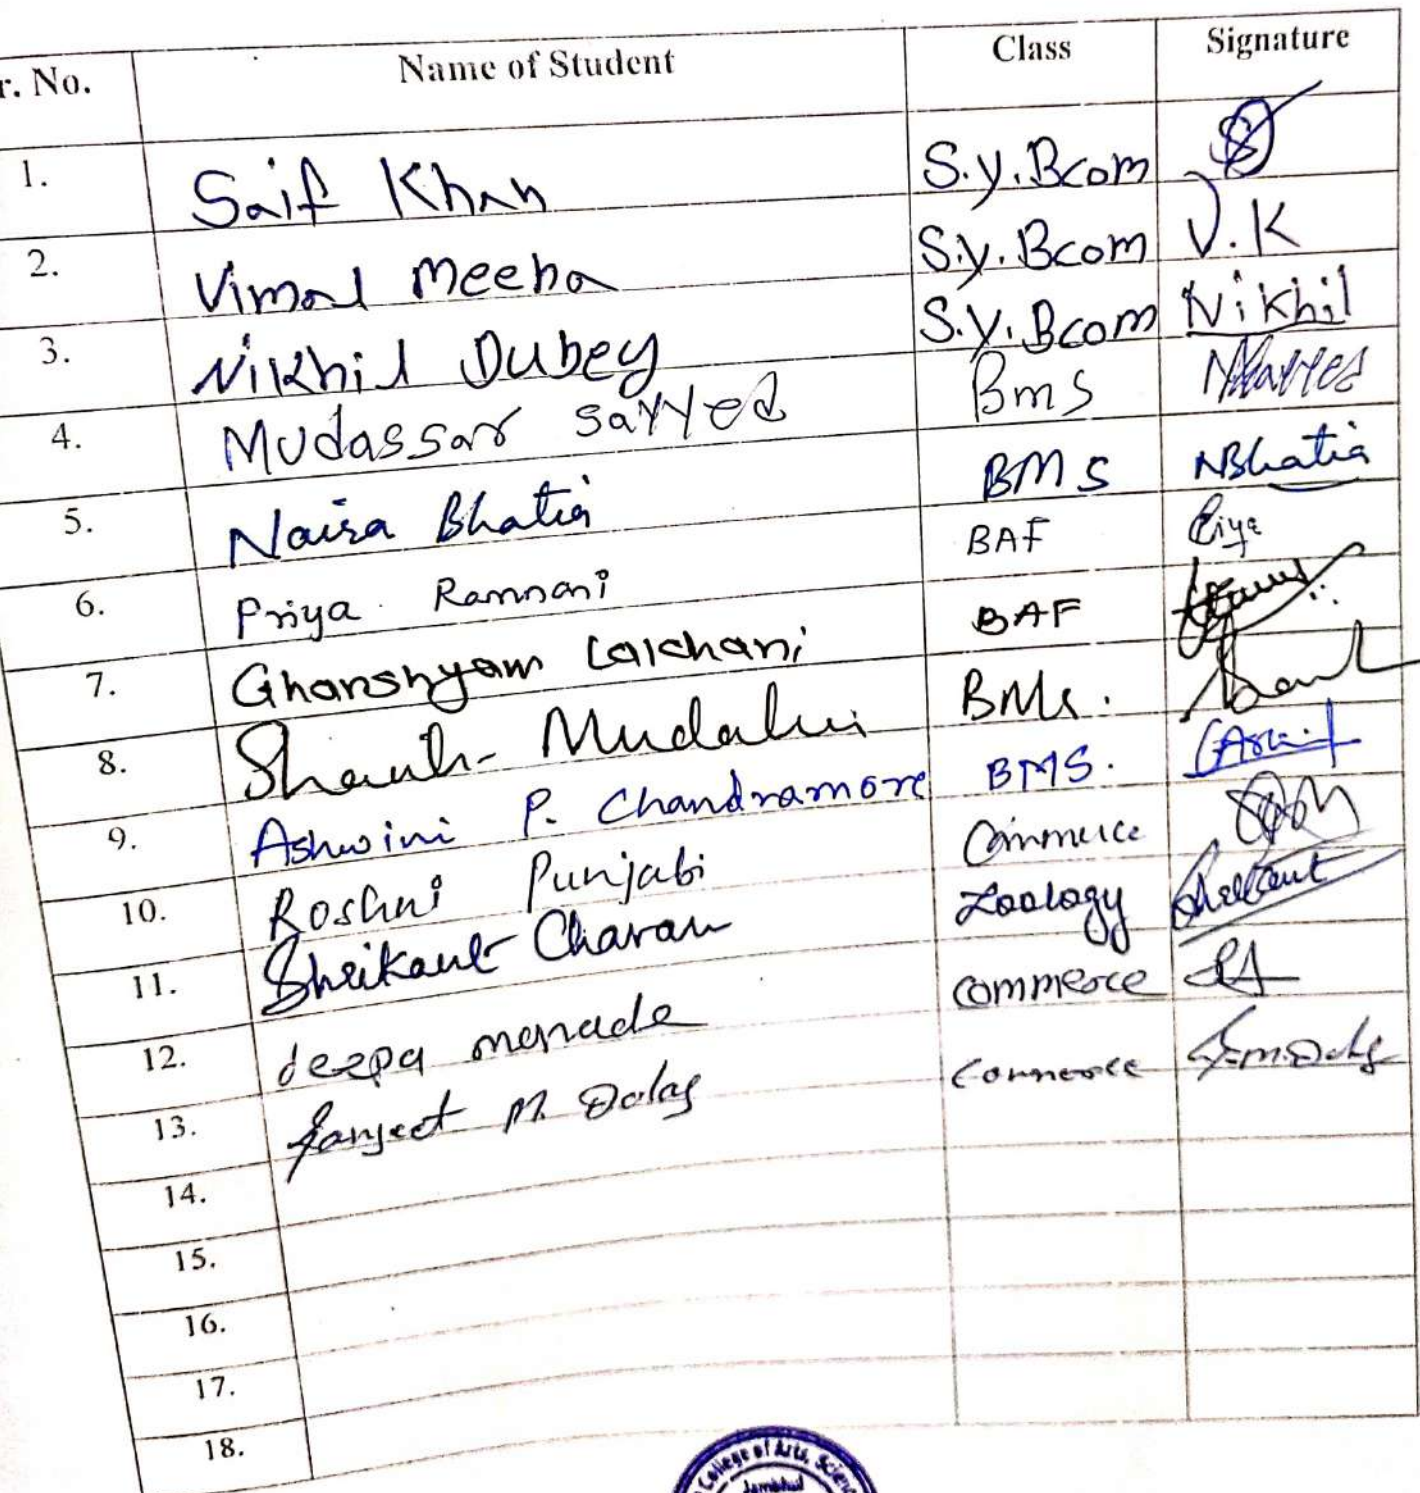 r. No. Name of Student Class Signature
1. Saif Khan S.y.Bcom
2. Vimal Meena S.y.Bcom V.K
3. Nikhil Dubey S.y.Bcom Nikhil
4. Mudassar Sayyed Bms
5. Naisa Bhatia BMS NBhatia
6. Priya Ramnani BAF
7. Ghanshyam Lalchani BAF
8. Mudaliar BMS.
9. Ashwini P. Chandramore BMS.
10. Roshni Punjabi Commerce
11. Shrikant Chavan Zoology
12. deepa Commerce
13. M. Commerce
14.
15.
16.
17.
18.
College of Arts,